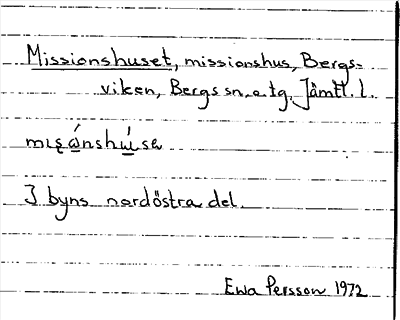 Missionshuset, missionshus, Bergs-
viken, Bergs sn o. tg. Jämtl. l.
mıʂònshúsə
I byns nordöstra del.
Ewa Persson 1972